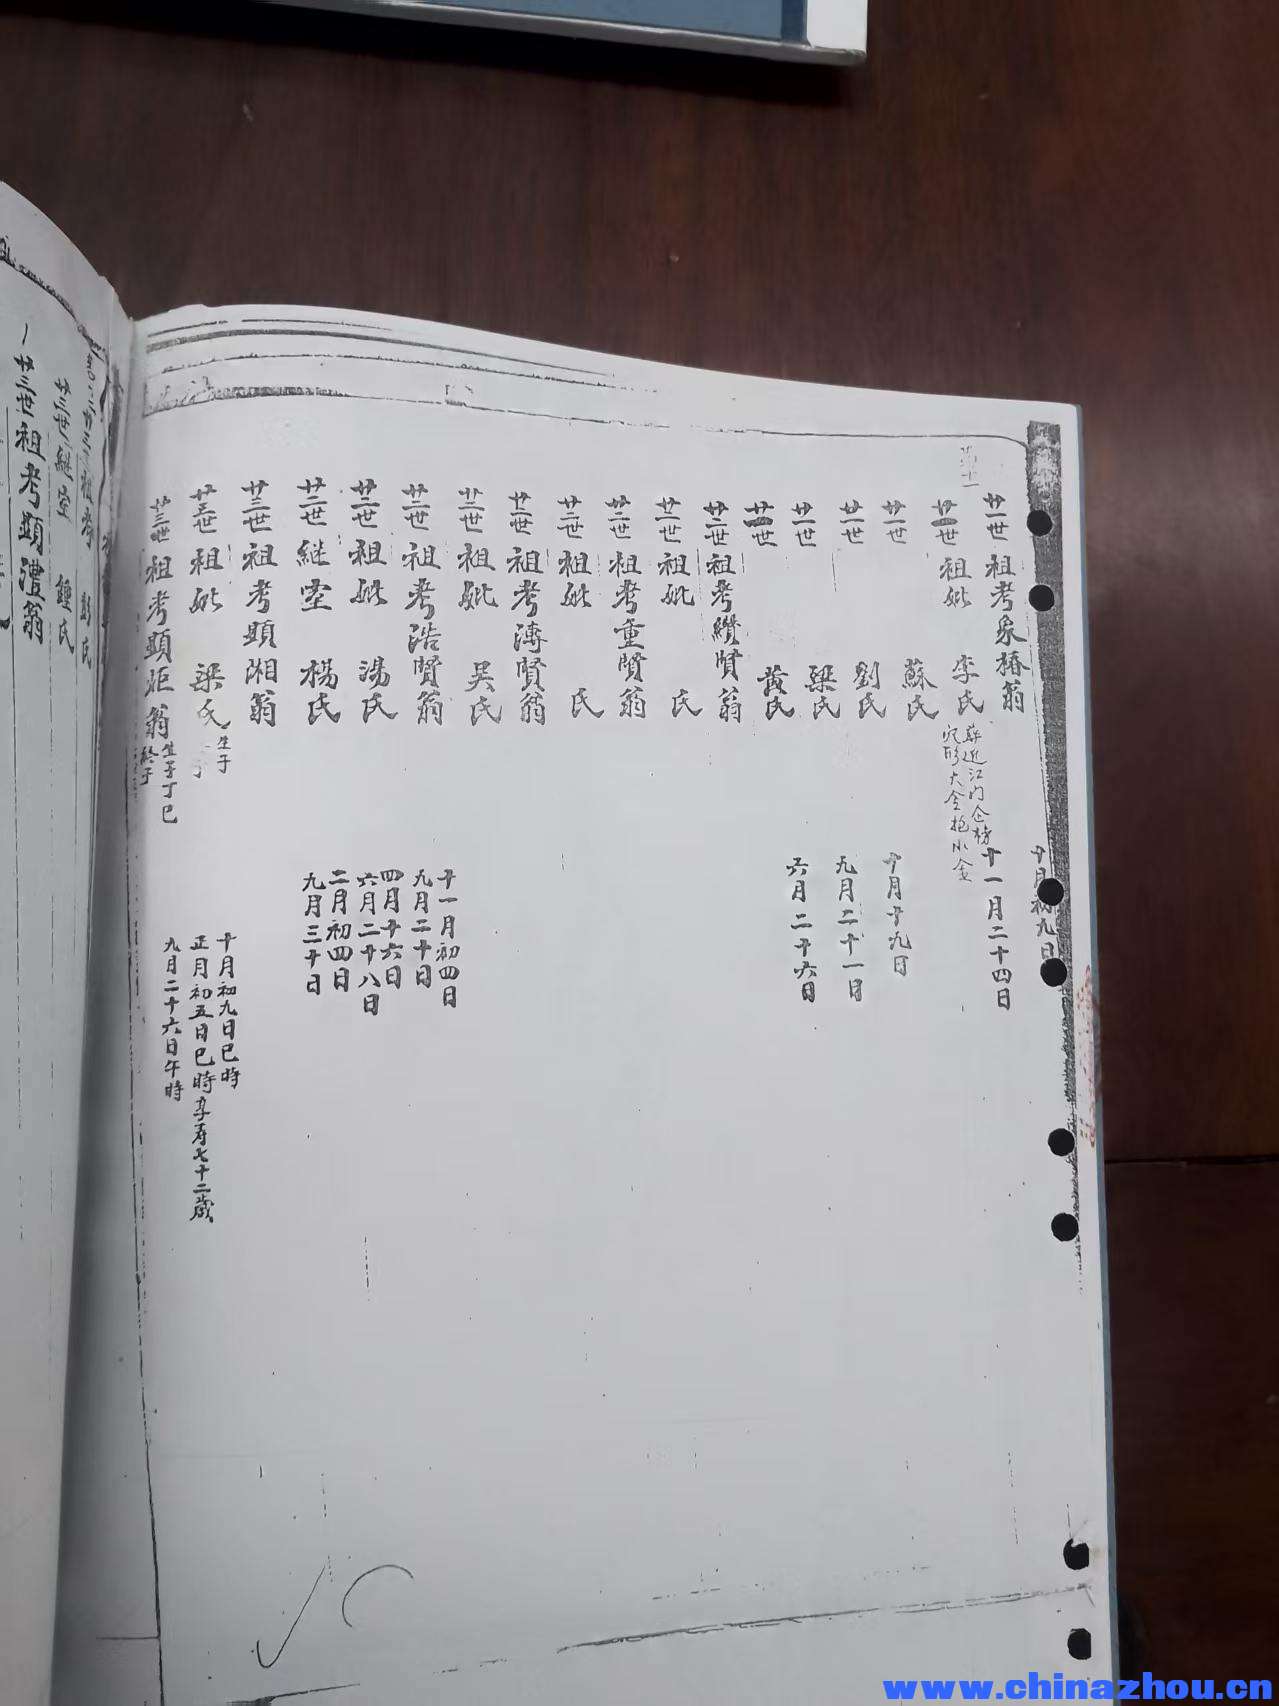 廿一世祖考象椿翁 十月初九日
廿一世祖妣李氏 十一月二十四日
葬近江門企榜
穴形大金抱小金
蘇氏
廿一世 劉氏 十月十九日
廿一世 梁氏 九月二十一日
廿一世 黃氏 六月二十六日
廿二世祖考纘賢翁
廿二世祖妣 氏
廿二世祖考重賢翁
廿二世祖妣 氏
廿二世祖考溥賢翁
廿二世祖妣 吳氏
廿二世祖考浩賢翁 十一月初四日
九月二十日
廿二世祖妣 湯氏 四月十六日
六月二十八日
廿二世繼室 楊氏 二月初四日
九月三十日
廿三世祖考顯湘翁
廿三世祖妣 梁氏 生于 十月初九日巳時
正月初五日巳時享壽七十二歲
廿三世祖考顯炬翁 生于丁巳 九月二十六日午時
終于
祖考 彭氏
廿三世繼室 鍾氏
廿三世祖考顯澧翁
www.chinazhou.cn